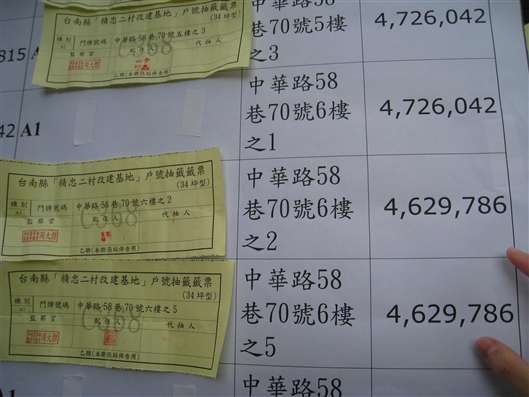 台南縣「精忠二村改建基地」戶號抽籤籤票
(34 坪型)
門牌號碼 中華路 58 巷 70 號五樓之 3
監察官 起造人 代抽人
4,726,042
815 A5
中華路58
巷70號5樓
之3
42 A1
中華路58
巷70號6樓
之1
4,726,042
台南縣「精忠二村改建基地」戶號抽籤籤票
(34 坪型)
種別
門牌號碼 中華路 58 巷 70 號六樓之 2
代抽人
中華路58
巷70號6樓
之2
4,629,786
台南縣「精忠二村改建基地」戶號抽籤籤票
(34 坪型)
種別
門牌號碼 中華路 58 巷 70 號六樓之 5
代抽人
中華路58
巷70號6樓
之5
4,629,786
A1
中華路58